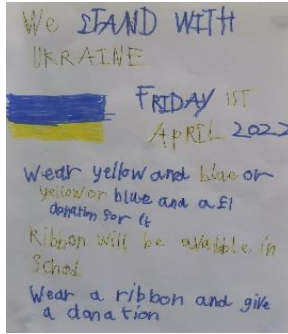 We STAND WITH
UKRAINE
FRIDAY 1ST
APRIL 2022
Wear yellow and blue or
yellow or blue and a £1
donation for it
Ribbon will be avalible in
School
Wear a ribbon and give
a donation